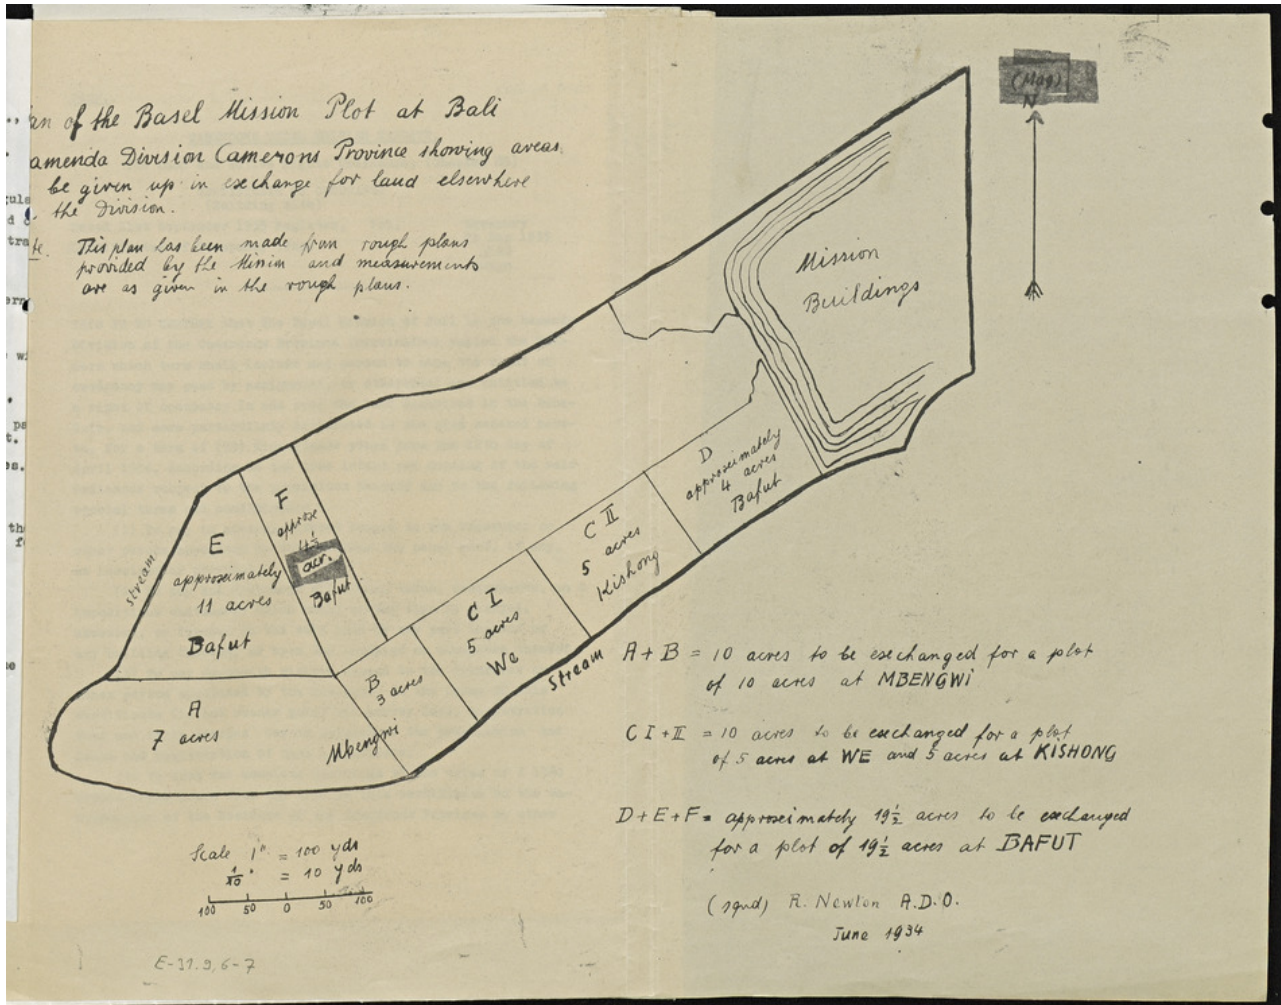 an of the Basel Mission Plot at Bali
amenda Division Camerons Province showing areas
be given up in exchange for land elsewhere
the Division.
te. This plan has been made from rough plans
provided by the Mission and measurements
are as given in the rough plans.
(Mag)
N
Mission
Buildings
D
approximately
4 acres
Bafut
C II
5 acres
Kishong
C I
5 acres
We
F
approx
acr.
Bafut
E
approximately
11 acres
Bafut
stream
Stream
B
3 acres
Mbengwi
A
7 acres
A + B = 10 acres to be exchanged for a plot
of 10 acres at MBENGWI
C I + II = 10 acres to be exchanged for a plot
of 5 acres at WE and 5 acres at KISHONG
D + E + F = approximately 19½ acres to be exchanged
for a plot of 19½ acres at BAFUT
(sgnd) R. Newton A.D.O.
June 1934
Scale 1" = 100 yds
1/10" = 10 yds
100 50 0 50 100
E-31.9,6-7